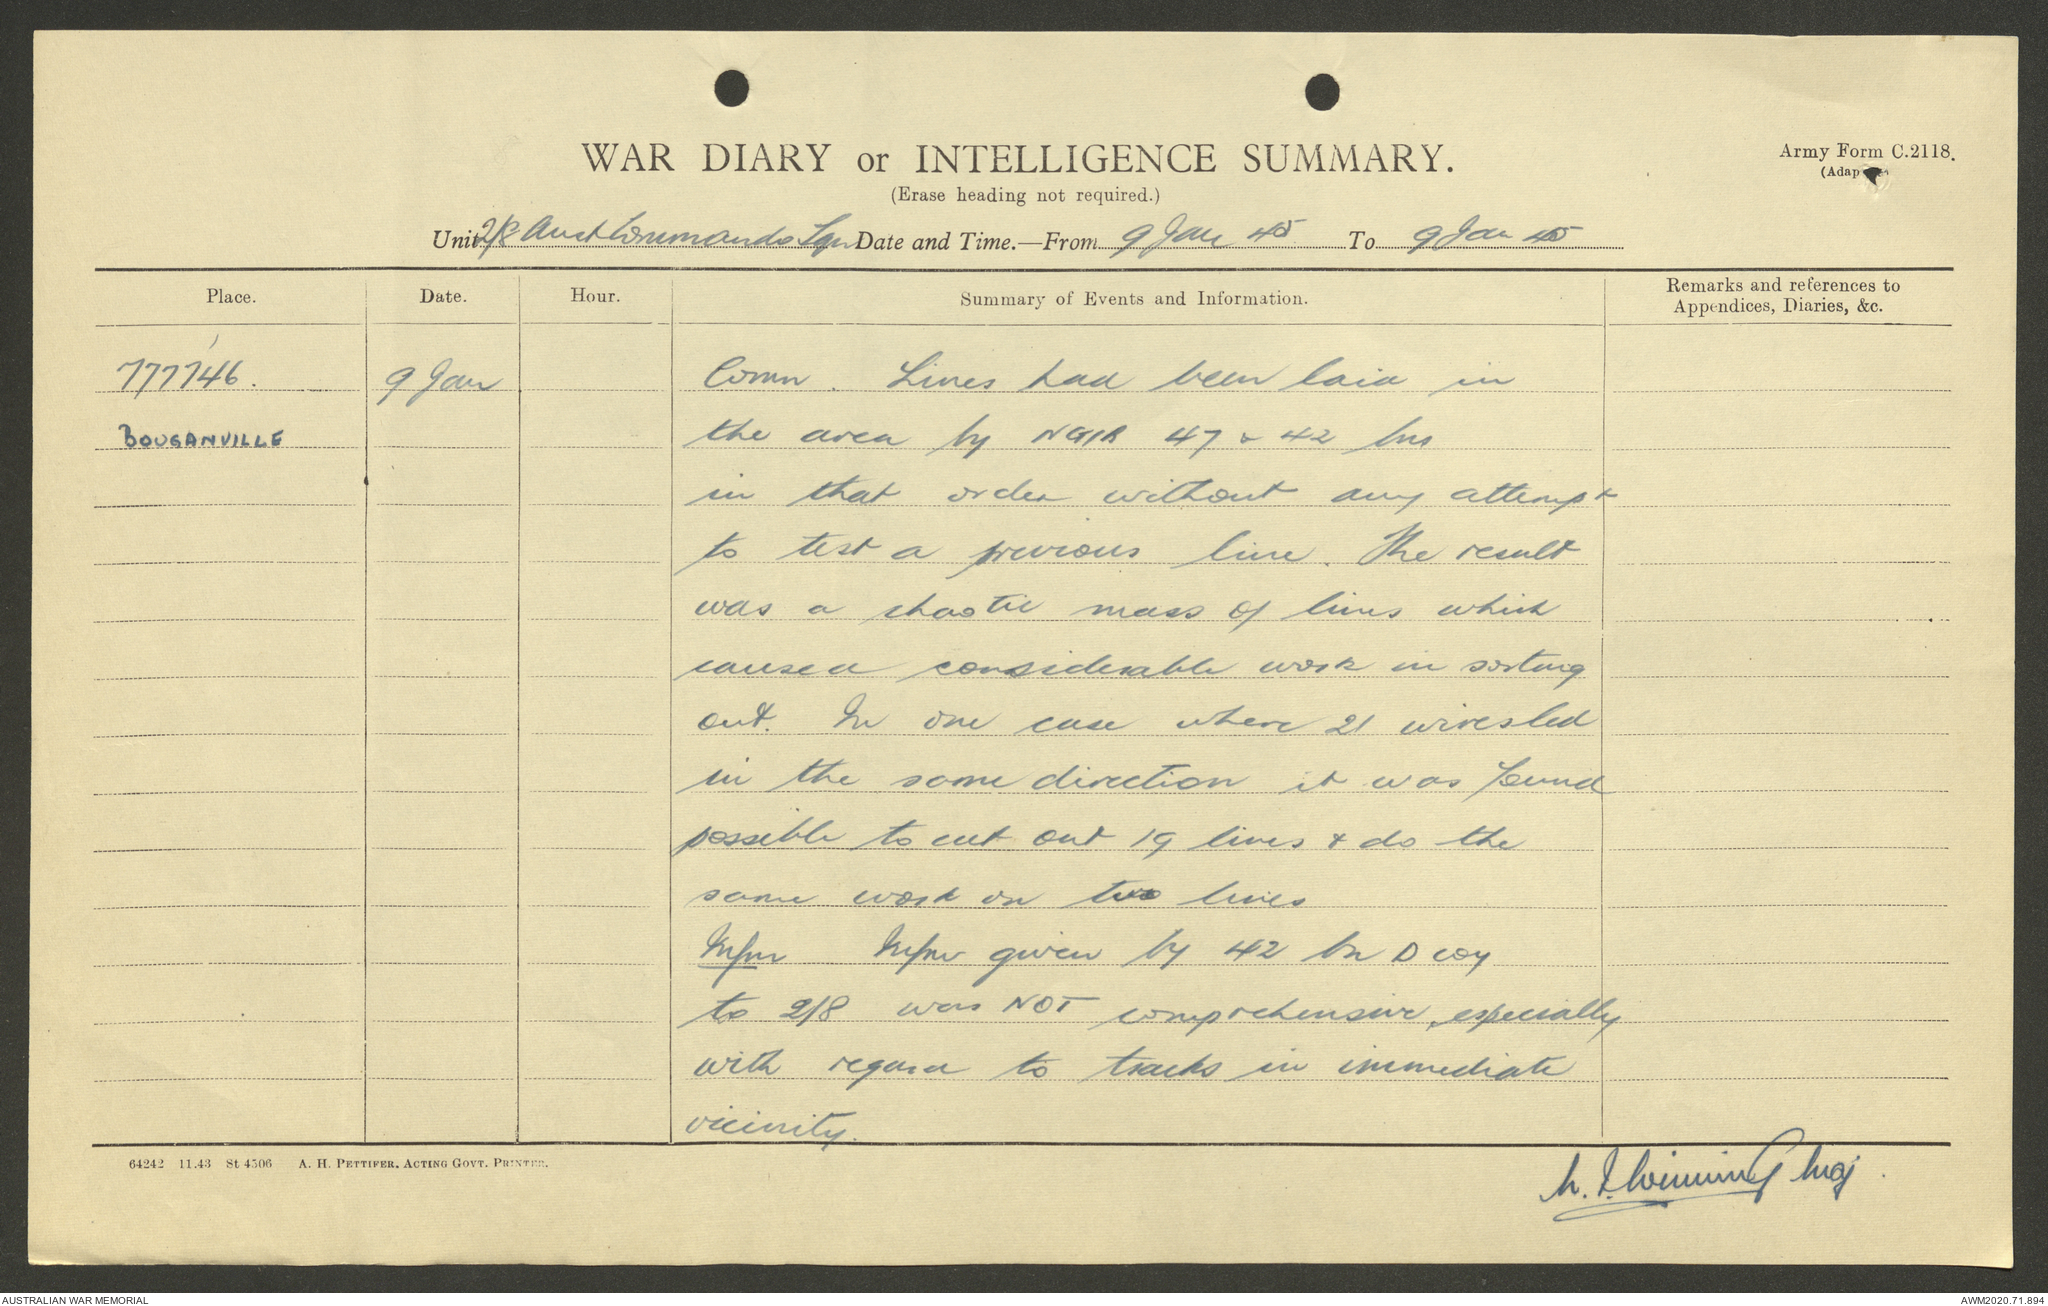 WAR DIARY or INTELLIGENCE SUMMARY.
Army Form C.2118.
(Erase heading not required.)
Unit 2/8 Aust Commando Sqn Date and Time.—From 9 Jan 45 To 9 Jan 45
Place.
Date.
Hour.
Summary of Events and Information.
Remarks and references to
Appendices, Diaries, &c.
777746.
9 Jan
Comn. Lines had been laid in
BOUGANVILLE
the area by NGIR 47 & 42 bns
in that order without any attempt
to test a previous line. The result
was a chaotic mass of lines which
caused considerable work in sorting
out. In one case where 21 wires led
in the same direction it was found
possible to cut out 19 lines & do the
same work on two lines
Infm Infm given by 42 Bn D coy
to 2/8 was NOT comprehensive, especially
with regard to tracks in immediate
vicinity.
64242 11.43 St 4506 A. H. PETTIFER, ACTING GOVT. PRINTER.
Winning Maj.
AUSTRALIAN WAR MEMORIAL
AWM2020.71.894